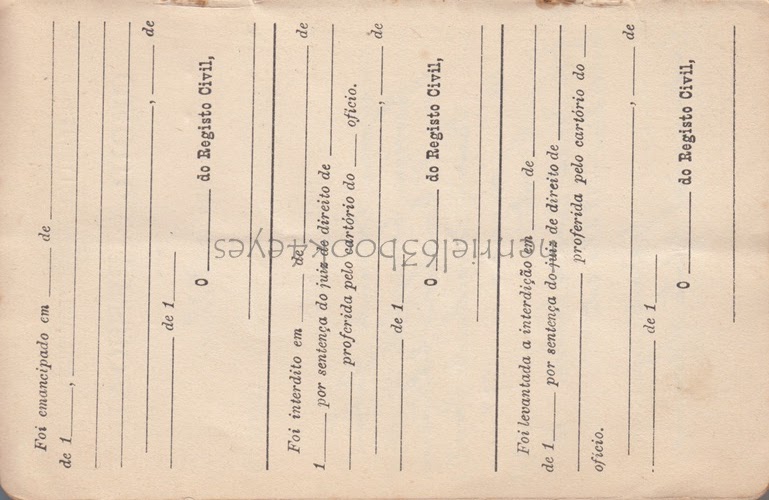 Foi emancipado em ____ de ____
de 1___, ____
____, ____ de
____ de 1___
O ____ do Registo Civil,
Foi interdito em ____ de ____ de
1___ por sentença do juiz de direito de ____
____ proferida pelo cartório do ____ oficio.
____, ____ de
____ de 1___
O ____ do Registo Civil,
Foi levantada a interdição em ____ de ____
de 1___ por sentença do juiz de direito de ____
____ proferida pelo cartório do ____
oficio.
____, ____ de
____ de 1___
O ____ do Registo Civil,